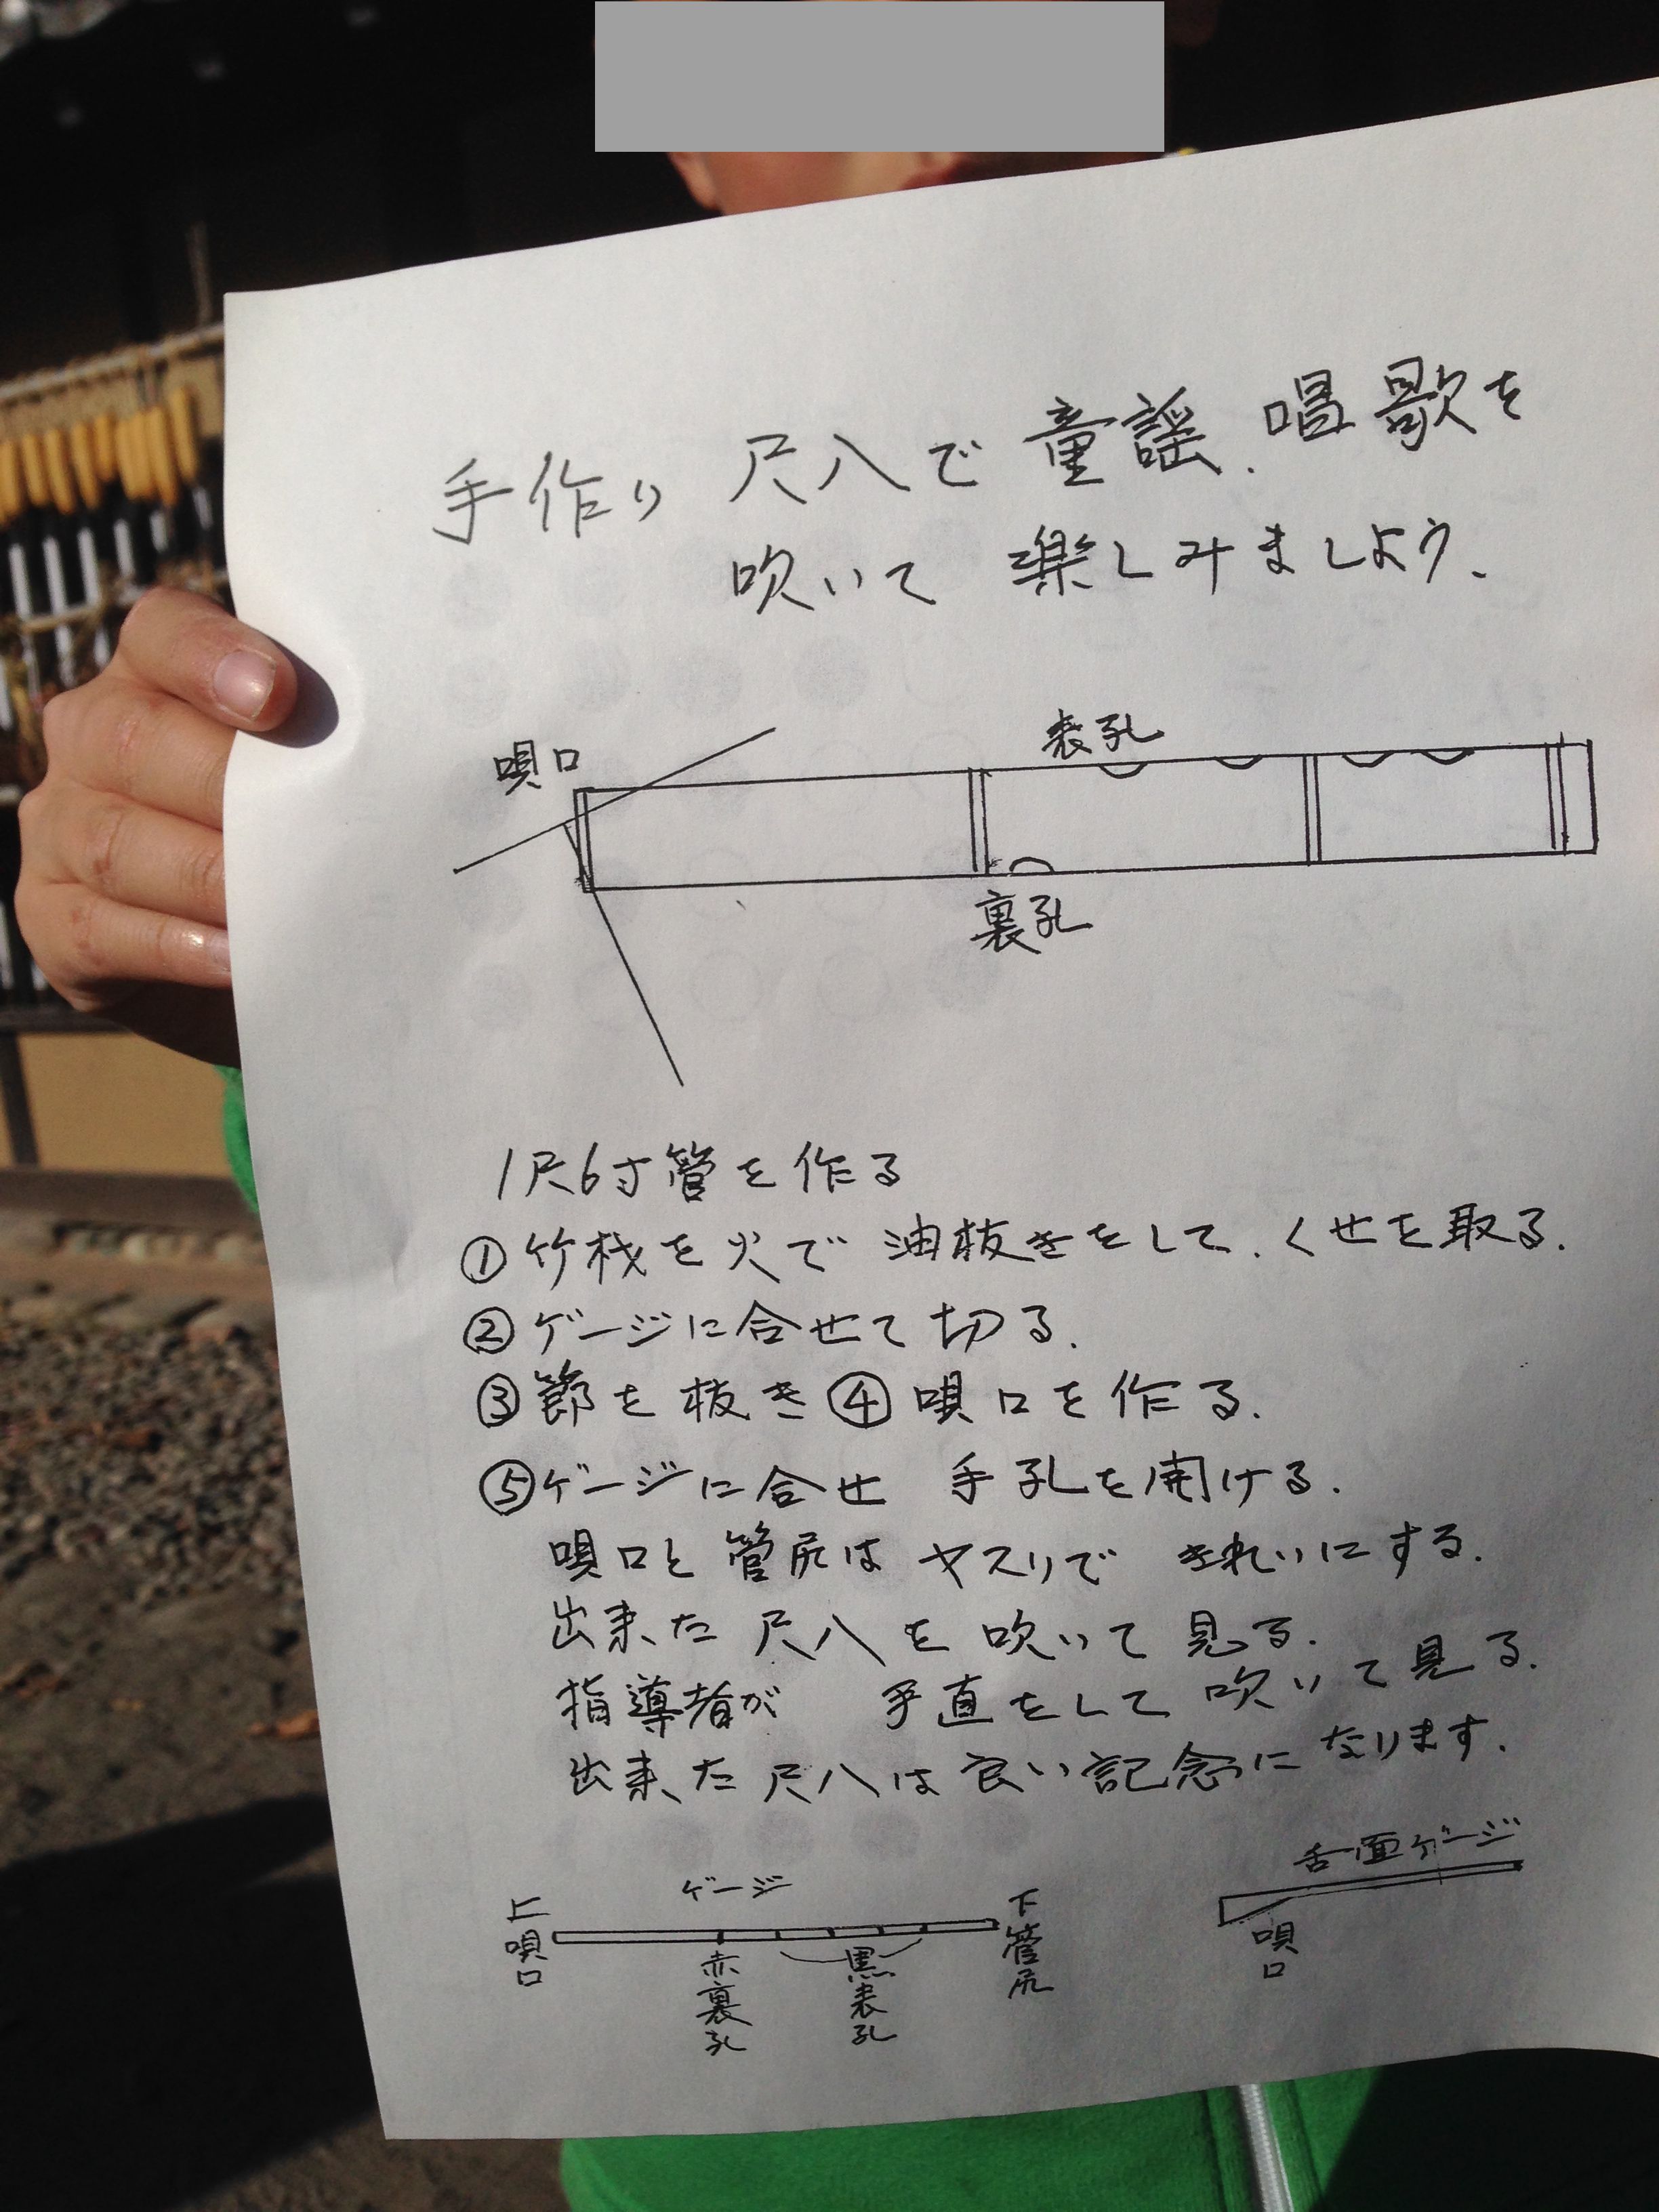 手作り 尺八で童謡、唱歌を
吹いて 楽しみましよう、
唄口
表孔
裏孔
1尺6寸管を作る
①竹材を火で 油抜きをして、くせを取る.
②ゲージに合せて切る.
③節を抜き④唄口を作る.
⑤ゲージに合せ 手孔を開ける.
唄口と管尻は ヤスリで きれいにする.
出来た 尺八を 吹いて 見る.
指導者が 手直をして 吹いて見る.
出来た尺八は良い記念になります.
舌面ゲージ
唄口
ゲージ
上唄口
赤裏孔
黒表孔
下管尻